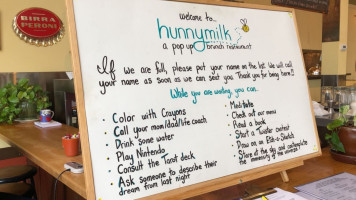 BIRRA
PERONI
welcome to...
hunnymilk
a pop up brunch restaurant
If we are full, please put your name on the list. We will call
your name as soon as we can seat you. Thank you for being here!
While you are waiting, you can...
· Color with Crayons
· Call your mom/dad/life coach
· Drink some water
· Play Nintendo
· Consult the Tarot deck
· Ask someone to describe their
dream from last night
· Check out our menu
· Read a book
· Start a Twister contest
· Draw on an Etch-a-Sketch
· Stare at the sky and contemplate
the immensity of the universe